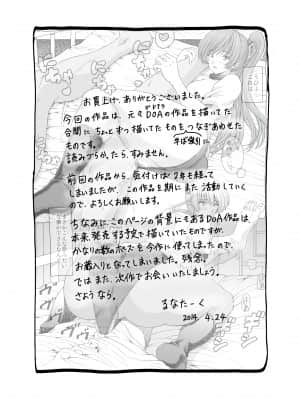 お買上げ、ありがとうございました。
今回の作品は、元々DOAの作品を描いてた
合間に ちょっとずつ描いてたものをつなぎあわせた
ものです。
読みづらかったら、すみません。
前回の作品から、気付けば2年も経って
しまいましたが、この作品を期にまた活動していく
ので、よろしくお願いします。
ちなみに、このページの背景にもあるDOA作品は、
本来発売する予定で描いていたものですが、
かなりの数のポーズを今作に使ってしまったので、
お蔵入りとなってしまいました。
では また、次作でお会いいたしましょう。
さようなら。
るなたーく
2014. 4. 24